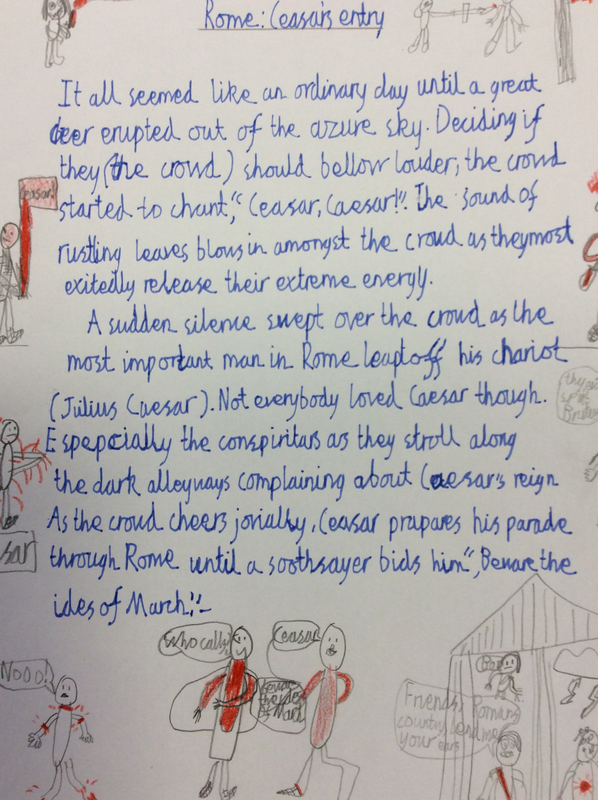 Rome: Ceasar's entry
It all seemed like an ordinary day until a great
cheer erupted out of the azure sky. Deciding if
they (the crowd) should bellow louder, the crowd
started to chant,“ Ceasar, Caesar!”. The sound of
rustling leaves blows in amongst the crowd as they most
exitedly release their extreme energy.
A sudden silence swept over the crowd as the
most important man in Rome leapt off his chariot
(Julius Caesar). Not everybody loved Caesar though.
Espepcially the conspiritars as they stroll along
the dark alleyways complaining about Caesar's reign
As the crowd cheers jovially, Ceasar prapares his parade
through Rome until a soothsayer bids him“, Beware the
ides of March!”
Ceasar
sar
Nooo!
Who calls
Ceasar
Beware
the ides
of March
Friends, Romans
country, Lend me
your ears